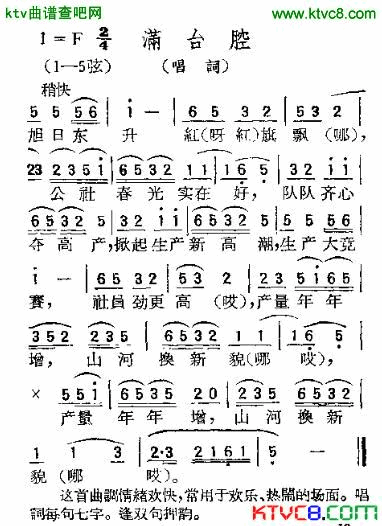 ktv曲谱查吧网 www.ktvc8.com
1=F 2/4 满台腔
(1—5弦) (唱詞)
稍快
5 5 56 i — 65 32 5332
旭日东 升 紅(呀 紅)旗 飘(哪),
23 235i 6532 1 1 i65 32 ii
公社 春光 实在 好, 队队 齐心
6532 532 ii 6532 1235 2 5 5 56
夺高产,掀起 生产 新 高 潮,生产 大竞
i — 65 32 53 2 235i 6532
賽, 社員 劲更 高(哎),产量 年 年
352 235i 6532 1 1 i6 5
增, 山河 换新 貌(哪 哎),
× 55i 6532 20 235i 6532
产量 年年 增, 山河 换新
1 1 3 2·3 2161 5 —
貌(哪 哎)。
这首曲調情緒欢快,常用于欢乐、热闹的场面。唱
詞每句七字。逢双句押韵。
KTVC8.COM